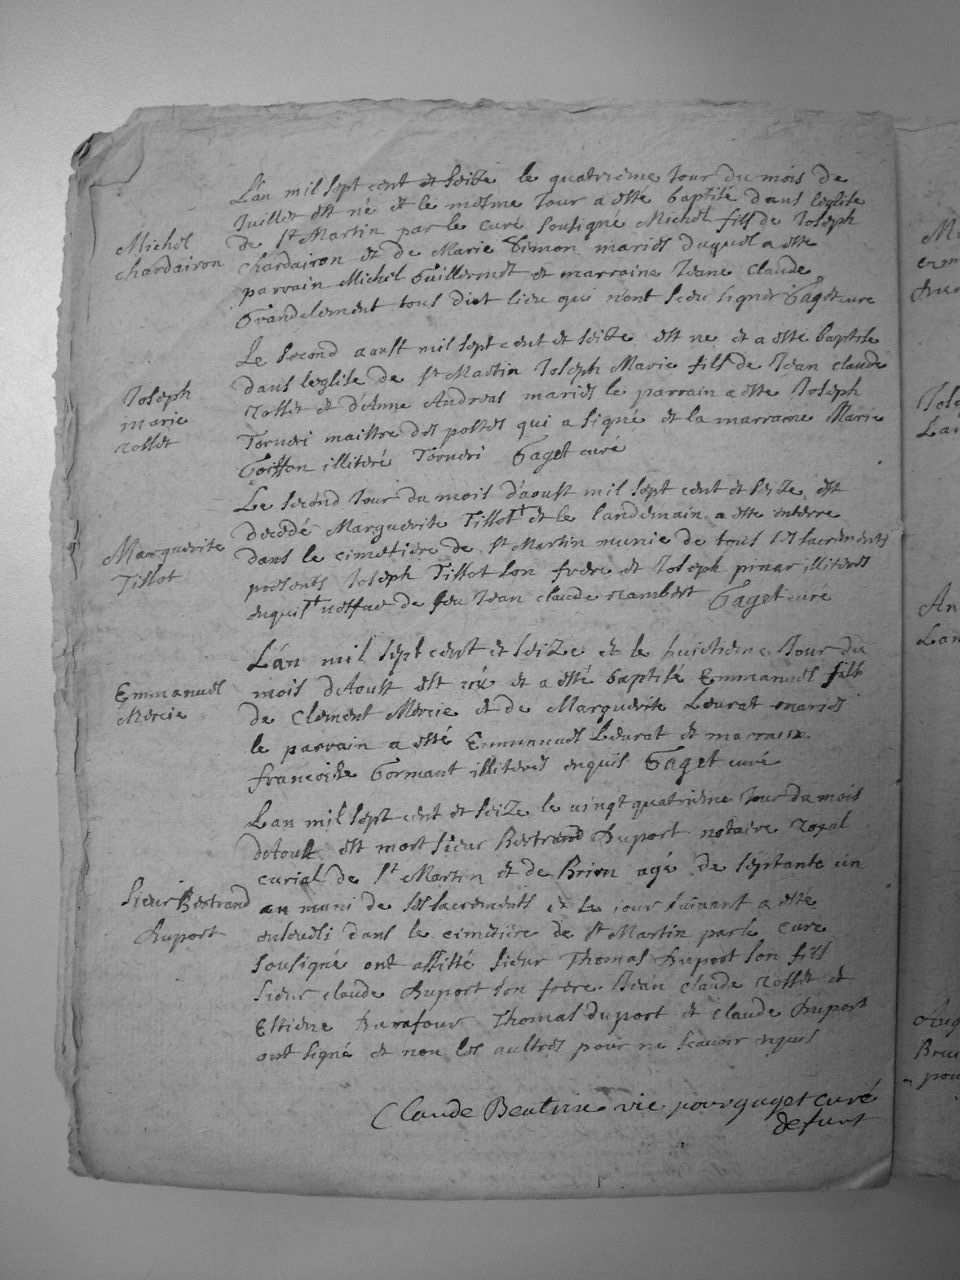 Lan mil sept cent et seitze le quatrieme Jour du mois de
Juillet est né et le mesme Jour a esté baptisé dans leglise
de St Martin par le curé sousigné Michel fils de Joseph
Michel
chardairon
chardairon et de Marie Simon mariés duquel a este
parrain Michel Guillermet et marraine Jeane Claude
Grandclement tous dict lieu qui n'ont sceu signer Gaget cure
Le second aoust mil sept cent et seitze est ne et a este baptise
dans leglise de St Martin Joseph Marie fils de Jean claude
Joseph
marie
rosset
rosset et d'Anne Andreas mariés le parrain a este Joseph
Torneri maistre des postes qui a signé et la marraine Marie
Goisson illiteré Torneri Gaget curé
Le second Jour du mois d'aoust mil sept cent et seize est
decedé Marguerite Tissot et le landemain a este enterre
Marguerite
Tissot
dans le cimetiere de St Martin munie de tous les sacrements
presents Joseph Tissot son frere et Joseph pinar illiteres
enquis de feu Jean claude rambert Gaget curé
Lan mil sept cent et seize et le huictieme Jour du
Emmanuel
Mercie
mois d'Aoust est né et a esté baptisé Emmanuel fils
de Clement Mercie et de Marguerite Leurat mariés
le parrain a esté Emmanuel Leurat et marraine
francoise Gormant illiteres enquis Gaget curé
Lan mil sept cent et seize le vingt quatrieme Jour du mois
d'Aoust est mort sieur Bertrand Duport notaire royal
curial de St Martin et de Brion agé de septante un
Sieur Bertrand
Duport
an muni de ses sacrements et le jour suivant a esté
enseveli dans le cimetiere de St Martin par le cure
sousigné ont assisté sieur Thomas Duport son fils
sieur claude Duport son frere Jean claude rosset et
Estiene Darafour Thomas duport et claude Duport
ont signé et non les aultres pour ne scavoir nquis
Claude Beatrix vic pour gaget curé
defunt